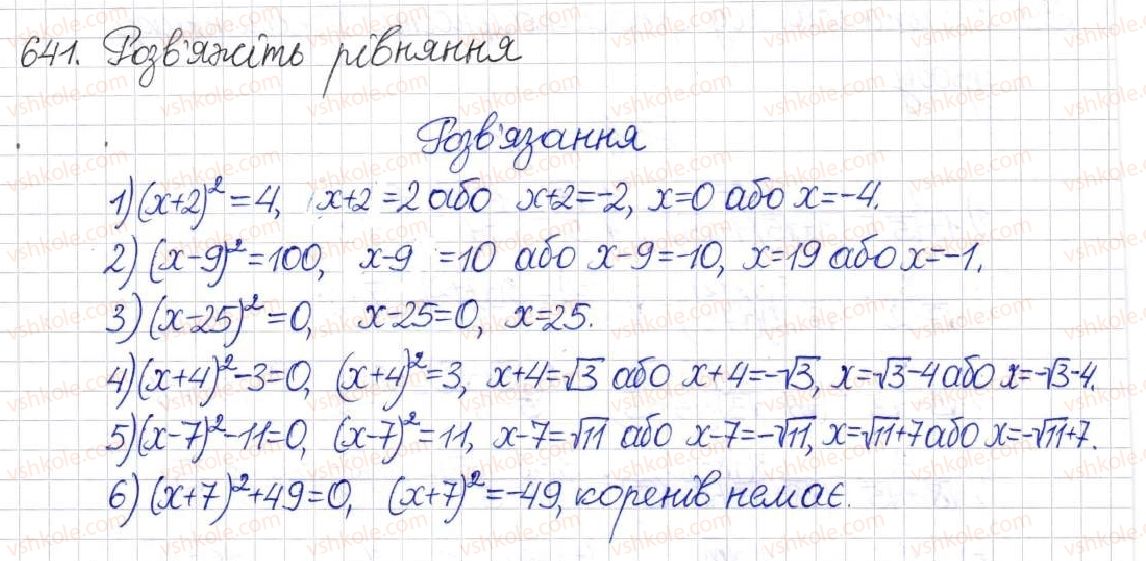 641. Розв'яжіть рівняння
Розв'язання
1) (x+2)² = 4, x+2 = 2 або x+2=-2, x=0 або x=-4.
2) (x-9)² = 100, x-9 = 10 або x-9=-10, x=19 або x=-1.
3) (x-25)² = 0, x-25=0, x=25.
4) (x+4)²-3=0, (x+4)²=3, x+4=√3 або x+4=-√3, x=√3-4 або x=-√3-4.
5) (x-7)²-11=0, (x-7)²=11, x-7=√11 або x-7=-√11, x=√11+7 або x=-√11+7.
6) (x+7)²+49=0, (x+7)²=-49, коренів немає.